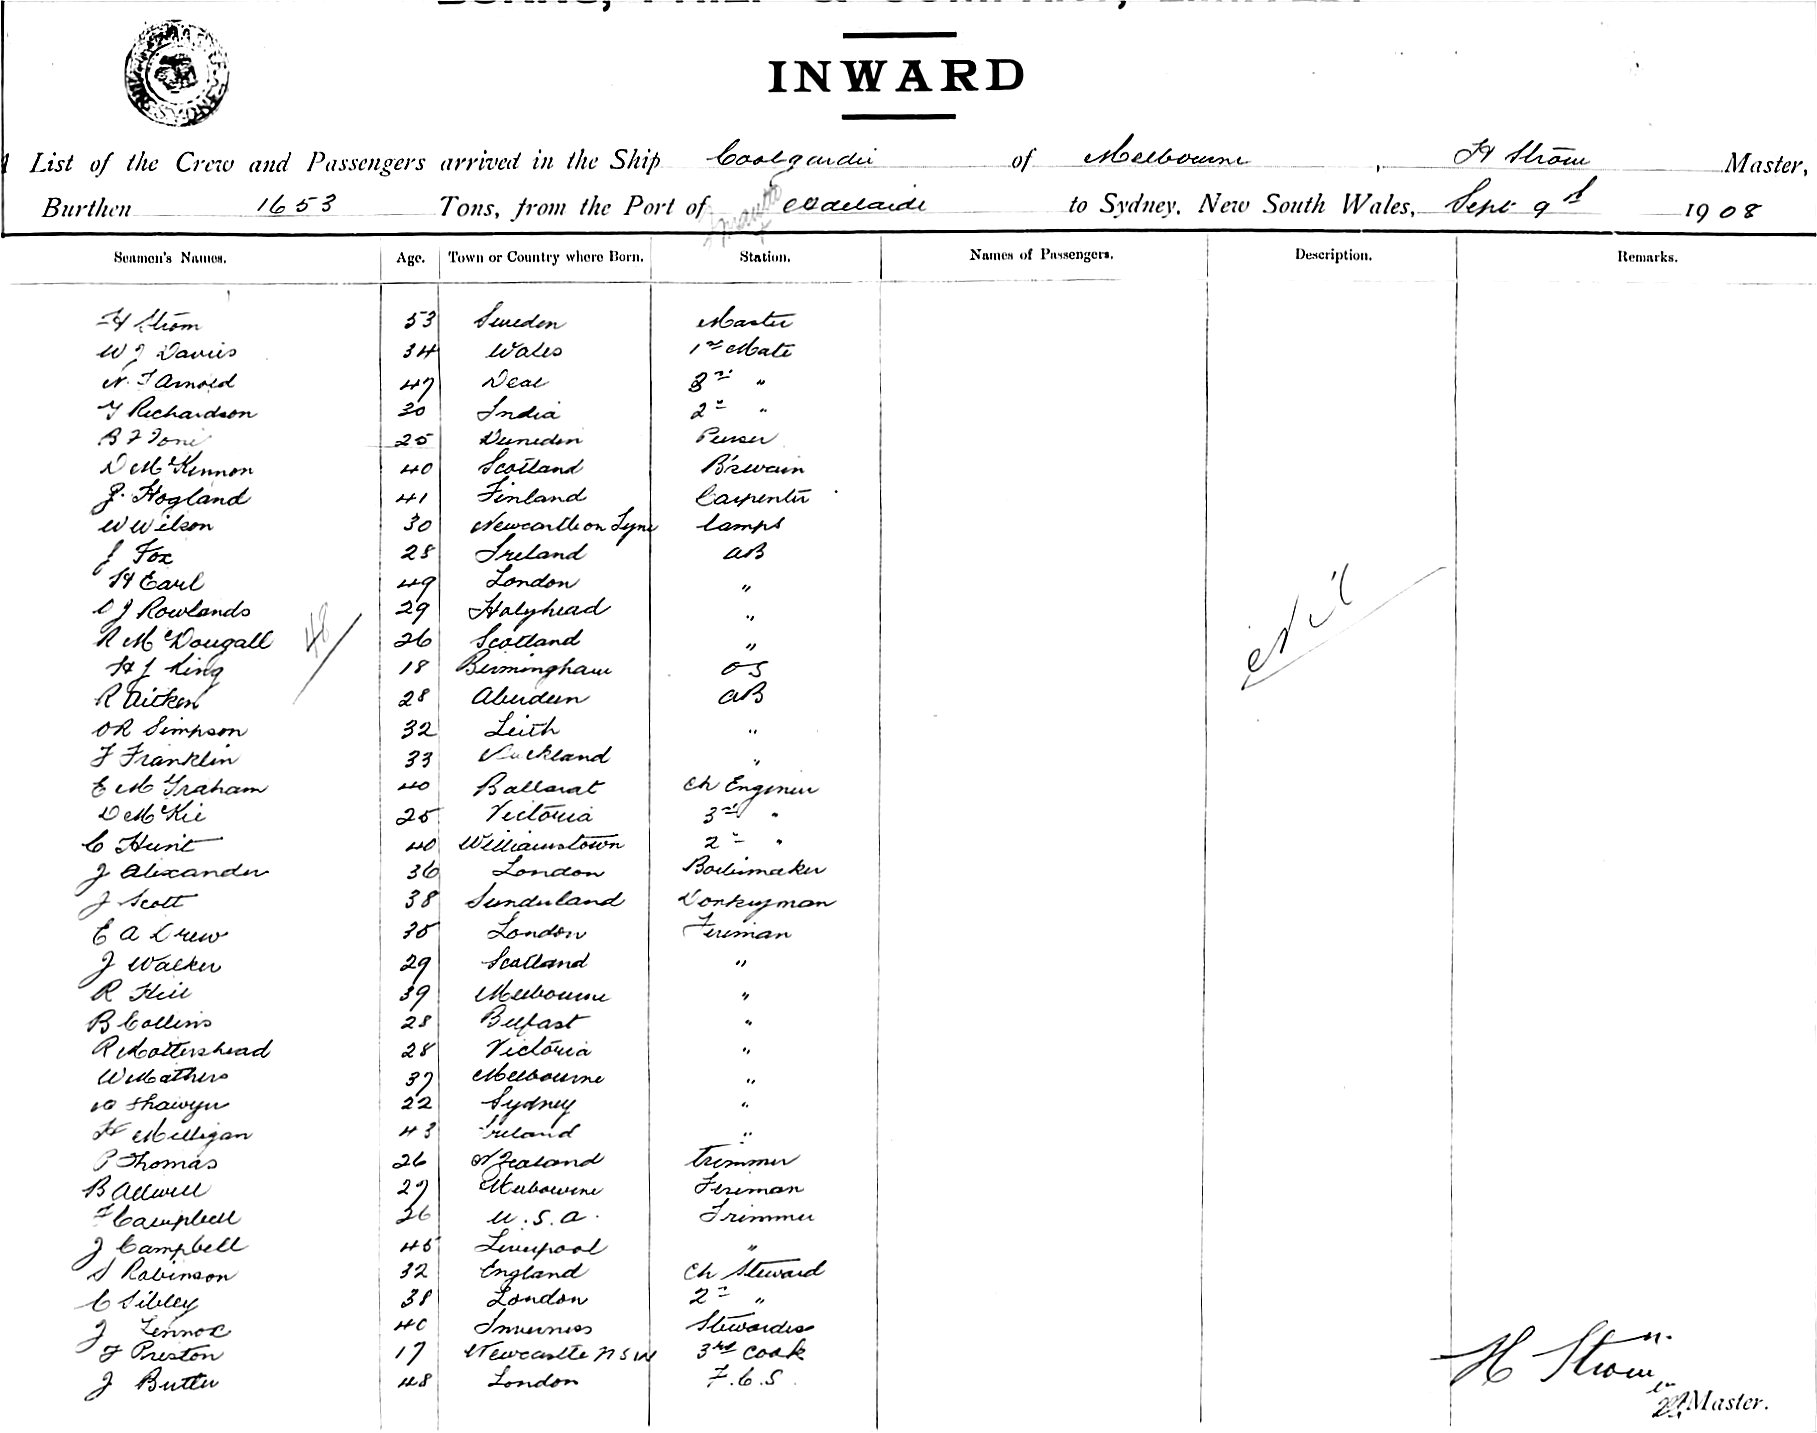 INWARD
List of the Crew and Passengers arrived in the Ship Coolgardie of Melbourne, H Ström Master,
Burthen 1653 Tons, from the Port of Adelaide to Sydney, New South Wales, Sept 9th 1908
Seamen's Names. Age. Town or Country where Born. Station. Names of Passengers. Description. Remarks.
H Ström 53 Sweden Master
W J Davies 34 Wales 1st Mate
N. F Arnold 47 Deal 3rd "
Y Richardson 30 India 2nd "
B F 25 Dunedin Purser
D McKinnon 40 Scotland B'swain
J. Hogland 41 Finland Carpenter
W Wilson 30 Newcastle on Tyne Lamps
J Fox 28 Ireland AB
H Earl 49 London "
O J Rowlands 29 Holyhead "
R McDougall 26 Scotland "
48/
H J King 18 Birmingham OS
R Aitken 28 Aberdeen AB
Nil
O R Simpson 32 Leith "
F Franklin 33 Auckland "
E M Graham 40 Ballarat Ch Engineer
D McKie 25 Victoria 3rd "
C Hunt 40 Williamstown 2nd "
J Alexander 36 London Boilermaker
J Scott 38 Sunderland Donkeyman
E A Drew 35 London Fireman
J Walker 29 Scotland "
R Hill 39 Melbourne "
B Collins 28 Belfast "
R Mottershead 28 Victoria "
W Mathers 37 Melbourne "
Shawyer 22 Sydney "
H Milligan 43 Ireland "
P Thomas 26 N Zealand Trimmer
B Allwell 27 Melbourne Fireman
F Campbell 26 U.S.A. Trimmer
J Campbell 45 Liverpool "
S Robinson 32 England Ch Steward
C Sibley 38 London 2nd "
J Lennox 40 Inverness Stewardess
F Preston 17 Newcastle NSW 3rd Cook
J Butler 48 London F.C.S.
H Ström
Master.